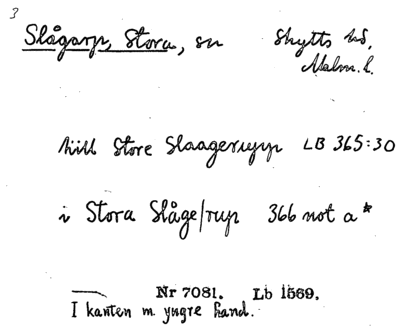 3
Slågarp, Stora, sn Skytts hd,
Malm. l.
till Store Slaagerupp LB 365:30
i Stora Slåge/rup 366 not a*
Nr 7081. Lb 1569.
I kanten m yngre hand.